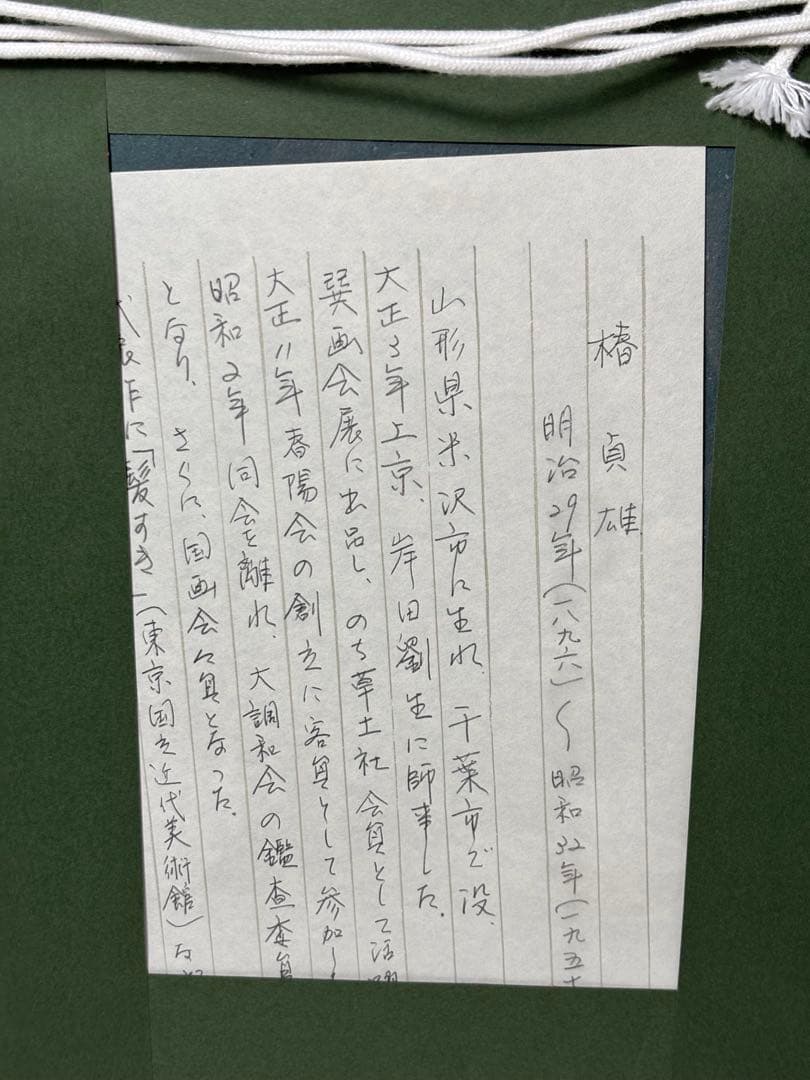 椿貞雄
明治29年(一八九六)〜昭和32年(一九五
山形県米沢市に生れ、千葉市で没、
大正3年上京、岸田劉生に師事した。
巽画会展に出品し、のち草土社会員として活躍
大正11年春陽会の創立に客員として参加し
昭和2年同会を離れ、大調和会の鑑査委員
となり、さらに、国画会々員となった。
代表作に「髪すき」(東京国立近代美術館)など